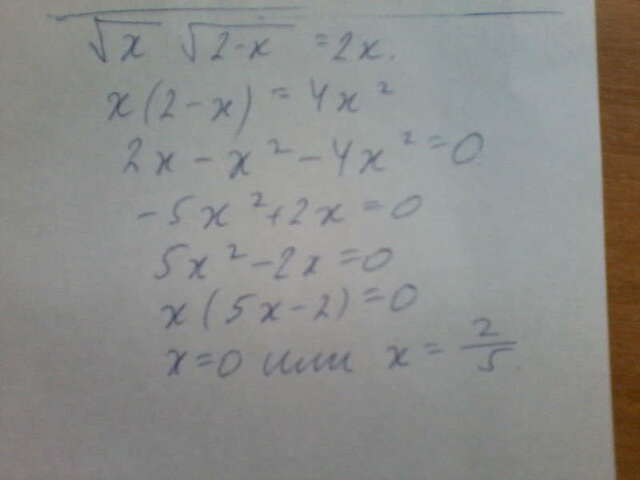 √x √2-x = 2x.
x(2-x) = 4x²
2x - x² - 4x² = 0
-5x² + 2x = 0
5x² - 2x = 0
x(5x-2) = 0
x=0 или x = 2/5.